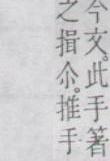 今文。此手箸
之揖尒。推手